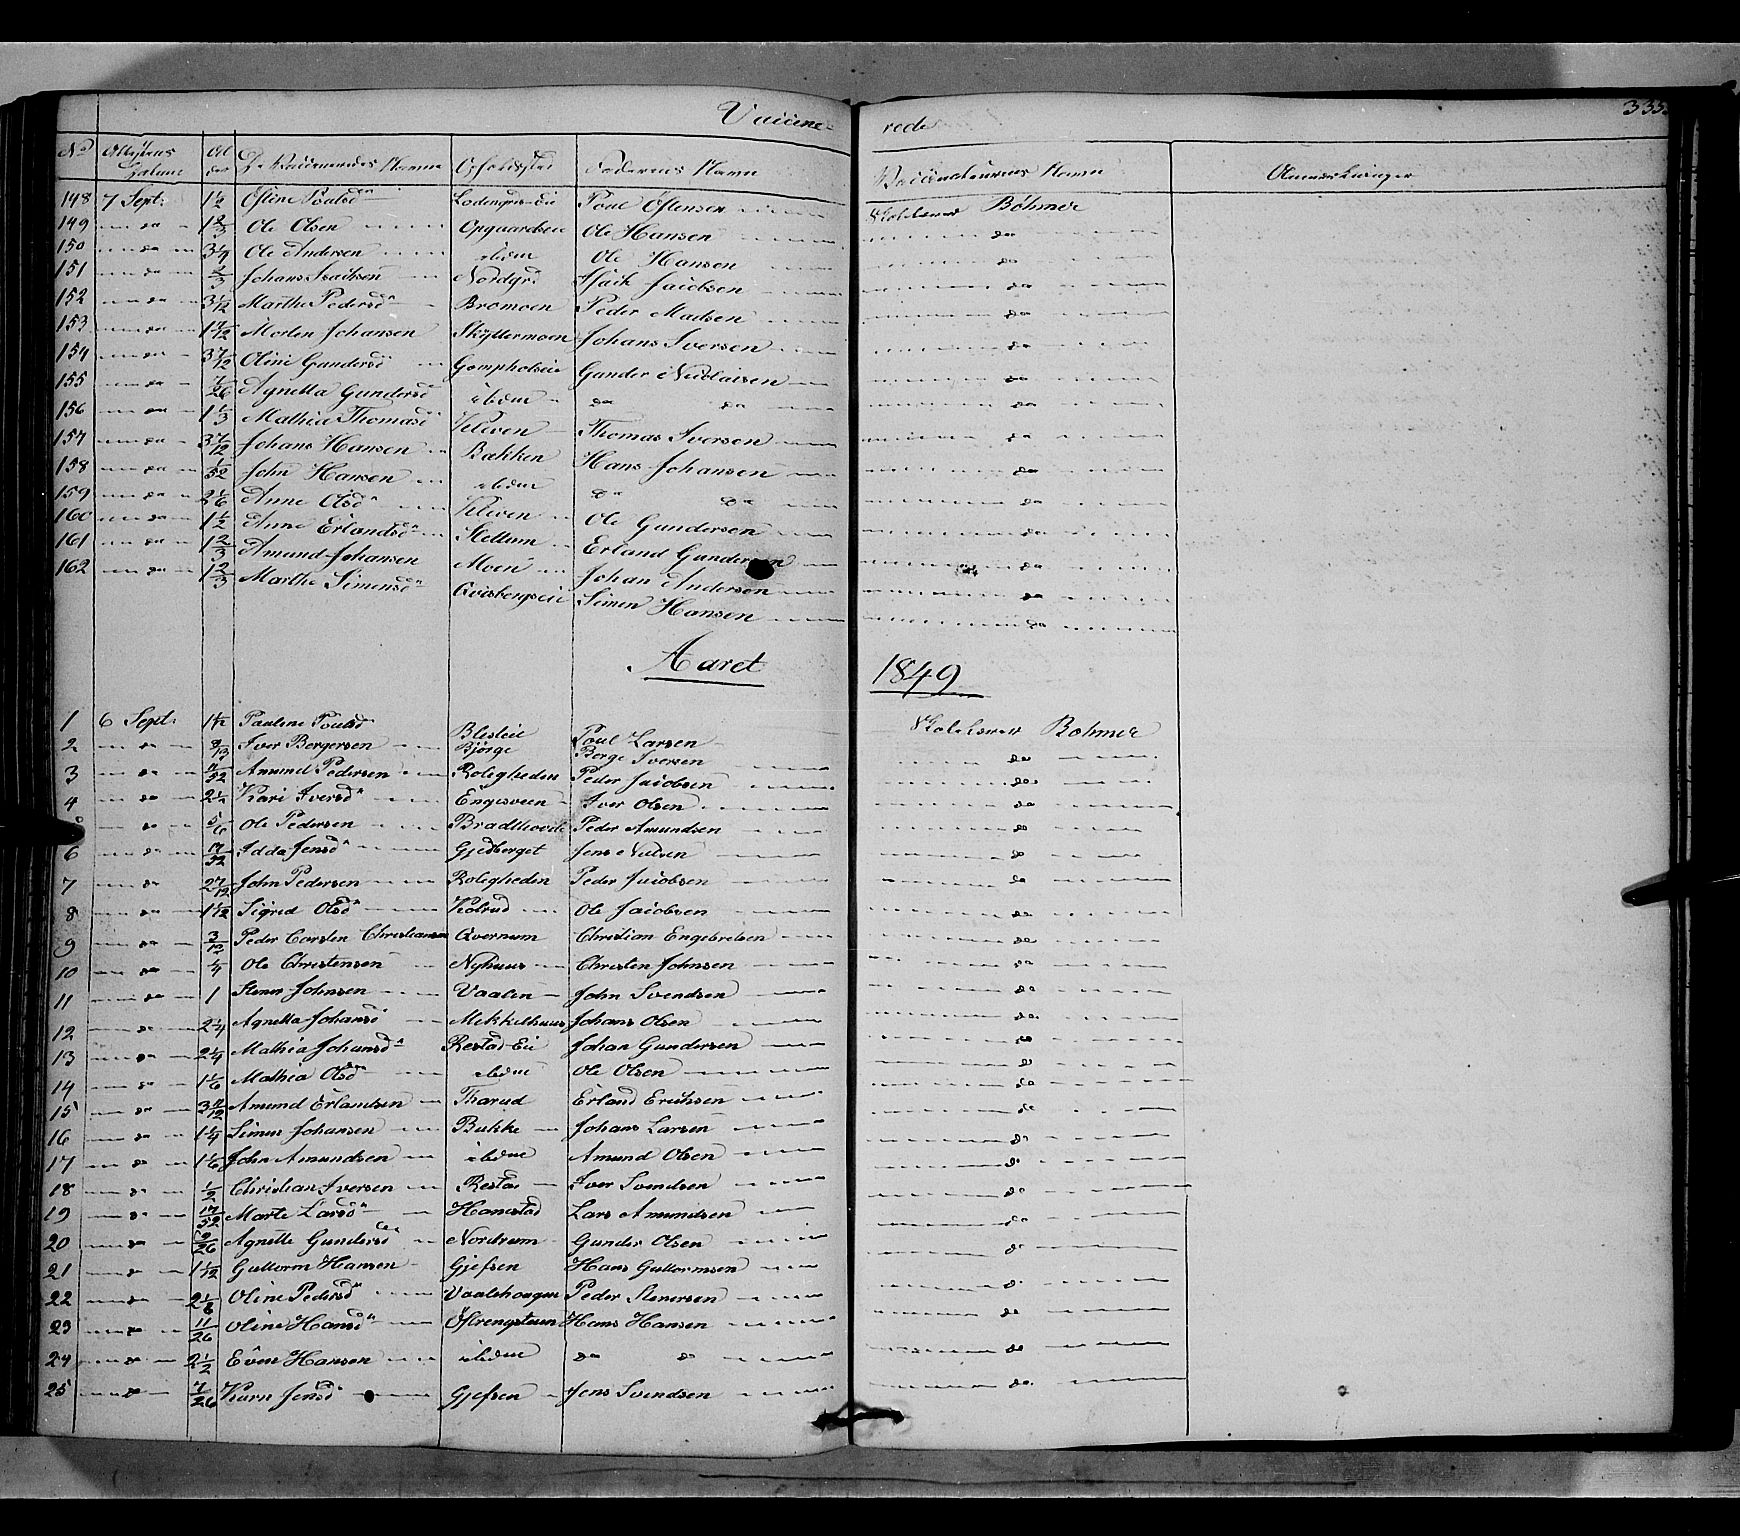 Vaccine- rede 335
No Attestens Datum Al der De Vaccineredes Navne Opholdssted Faderens Navn Vaccinateurens Navn Anmærkninger
148 7 Sept: 1 1/2 Østine Poulsd Lodengrs-Eie Poul Østensen Skolelærer Böhmer
149 da 1 2/3 Ole Olsen Opgaardseie Ole Hansen da
150 da 3 1/4 Ole Andersen ibidm Ole Hansen da
151 da 2/3 Johans Isachsen Nordgrd Isach Jacobsen da
152 da Marthe Pedersd Bromoen Peder Madsen da
153 da Morten Johansen Skyttermoen Johans Iversen da
154 da Oline Gundersd Gompholseie Gunder Nicolaisen da
155 da Agnetta Gundersd ibidm da da da
156 da 1 1/3 Mathia Thomasd Kleven Thomas Iversen da
157 da Johans Hansen Bakken Hans Johansen da
158 da John Hansen ibidm da da da
159 da 2 1/6 Anne Olsd Kleven Ole Gundersen da
160 da 1 1/2 Anne Erlandsd Stettum Erland Gundersen da
161 da 1 2/3 Amund Johansen Moen Johan Andersen da
162 da 1 2/3 Marthe Simensd Qvisbergseie Simen Hansen da
Aaret 1849
1 6 Sept: Pauline Poulsd Blesleie Poul Larsen Skolelærer Bohmer
2 da Iver Bergersen Bjørge Berge Iversen da
3 da Amund Pedersen Rolegheden Peder Jacobsen da
4 da Kari Iversd Engesveen Iver Olsen da
da 5/6 Ole Pedersen Bradthovde Peder Amundsen da
6 da 17/52 Idda Jensd Gjedberget Jens Nielsen da
7 da 2 7/12 John Pedersen Rolegheden Peder Jacobsen da
8 da 1 1/12 Sigrid Olsd Kolrud Ole Jacobsen da
9 da 3/12 Peder Carsten Christiansen Qvernum Christian Engebretsen da
10 da 1/4 Ole Christensen Nyhuus Christen Johnsen da
11 da 1 Stener Johnsen Vaalen John Svendsen da
12 da 2 1/4 Agnetta Johansd Mekkelhuus Johans Olsen da
13 da 2 1/4 Mathia Johansd Restad-Eie Johan Gundersen da
14 da 1 1/6 Mathea Olsd ibidm Ole Olsen da
15 da 3 11/12 Amund Erlandsen Tharud Erland Erichsen da
16 da 1 1/4 Simen Johansen Bakke Johans Larsen da
17 da 1 1/6 John Amundsen ibidm Amund Olsen da
18 da 1/2 Christian Iversen Restad Iver Svendsen da
19 da 17/52 Marte Larsd Hanestad Lars Amundsen da
20 da Agnette Gundersd Nordrum Gunder Olsen da
21 da 1 1/12 Guttorm Hansen Gjefsen Hans Guttormsen da
22 da 2 1/8 Oline Pedersd Vaalehaugen Peder Stenersen da
23 da 11/26 Oline Hansd Østrengsteen Hans Hansen da
24 da 2 1/2 Even Hansen ibidm da da da
25 da 7/26 Karn Jensd Gjefsen Jens Svendsen da